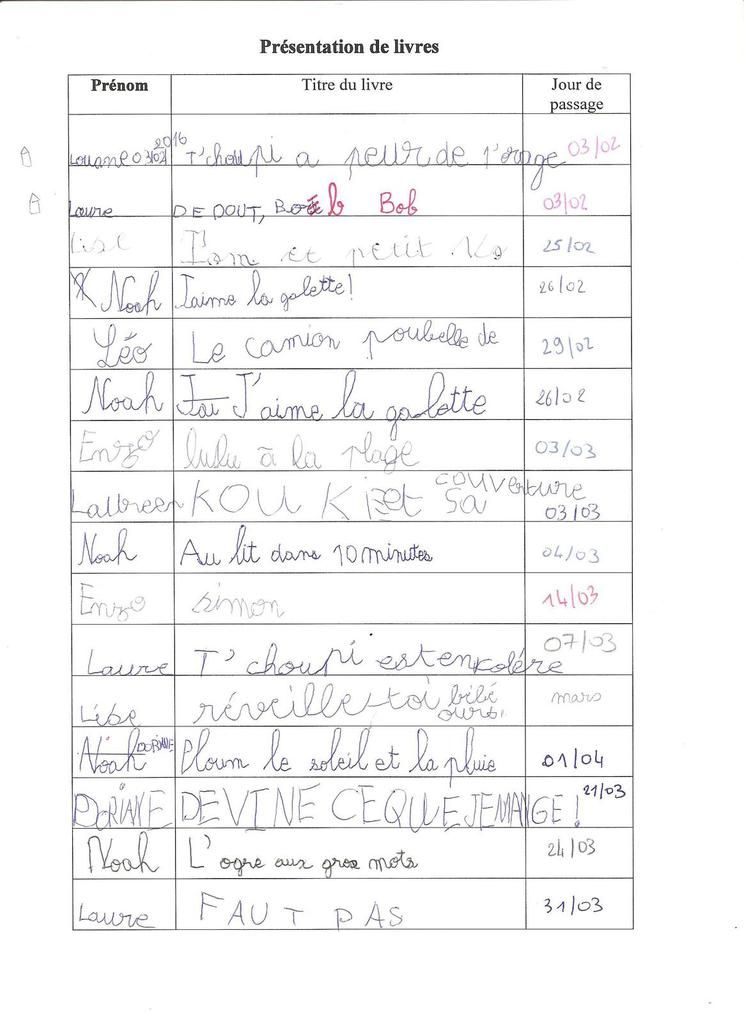 Présentation de livres
Prénom Titre du livre Jour de passage
Louane 03/02 2016 T'choupi a peur de l'orage 03/02
Laure DE DOUT, Bob 03/02
Lise Tom et petit 25/02
Noah J'aime la galette! 26/02
Léo Le camion poubelle de 29/02
Noah J'ai J'aime la galette 26/02
Enzo lulu à la plage 03/03
KOU KI et sa couverture 03/03
Noah Au lit dans 10 minutes 04/03
Enzo simon 14/03
Laure T'choupi est en kolére 07/03
Lise réveille-toi bébé ours. mars
Noah DORIANE Ploum le soleil et la pluie 01/04
DORIANE DEVINE CE QUE JE MANGE! 21/03
Noah L'ogre aux gros mots 24/03
Laure FAUT PAS 31/03